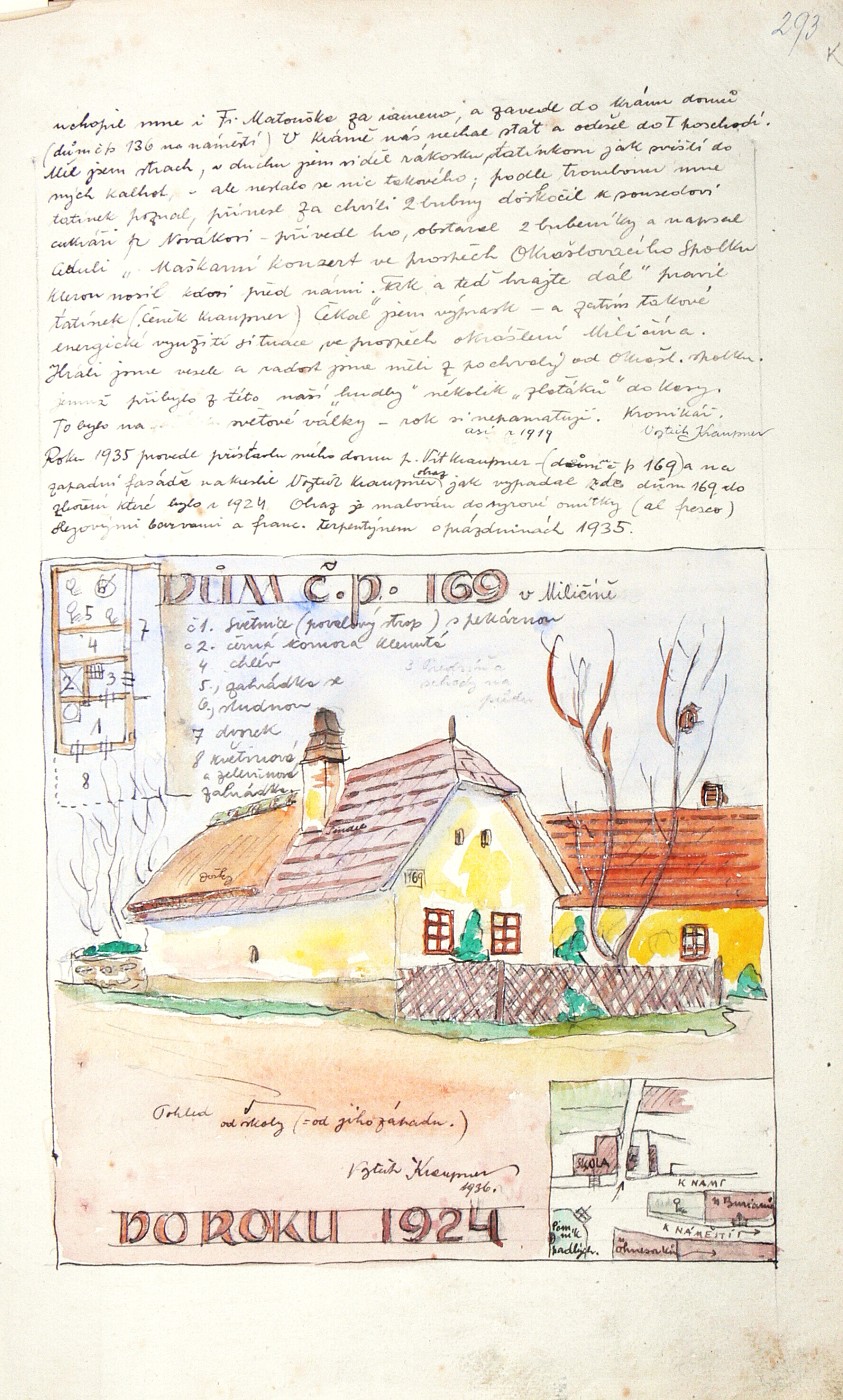 293
K
uchopil mne i Fr. Matouška za rameno, a zavede do krámu domů
(dům čís 136 na náměstí) V krámě nás nechal stát a odešel do I poschodí.
Měl jsem strach, v duchu jsem viděl rákosku tatínkovu jak sviští do
mých kalhot, - ale nestalo se nic takového; podle trombonu mne
tatínek poznal, přinesl za chvíli 2 bubny doskočil k sousedovi
cukráři Novákovi - přivedl ho, obstaral 2 bubeníky a napsal
ceduli „Maškarní konzert ve prospěch Okrašlovacího Spolku
kterou nosil kdosi před námi. „Tak a teď hrajte dál" pravil
tatínek (Čeněk Kraupner) Čekal jsem výprask - a zatím takové
energické využití situace ve prospěch okrášlení Miličína.
Hráli jsme vesele a radost jsme měli z pochvaly od Okrašl. spolku.
jemuž přibylo z této naší „hudby" několik „zlaťáků" do kasy.
To bylo na světové války - rok si nepamatuji. Kronikář.
asi r 1919 Vojtěch Kraupner
Roku 1935 provedl přístavbu svého domu p. Vít Kraupner - (dům č p 169) a na
západní fasádě nakreslil Vojtěch Kraupner obraz jak vypadal zde dům 169 do
zboření které bylo r 1924. Obraz je malován do syrové omítky (al fresco)
barvami a franc. terpentýnem o prázdninách 1935.
DŮM Č.P. 169 v Miličíně
č 1. Světnice (povalový strop) s pekárnou
č 2. černá komora klenutá
3
schody na
4 chlév
5., zahrádka se
6., studnou
7 dvorek
8 květinová
a zeleninová
zahrádka.
6
5
4
7
2
3
1
8
Šindel
Došky
169
Pohled od školy (= od jihozápadu.)
Vojtěch Kraupner
1936.
DO ROKU 1924
ŠKOLA
K NÁMĚ
u Burianů
K NÁMĚSTÍ
Pomník
padlých.